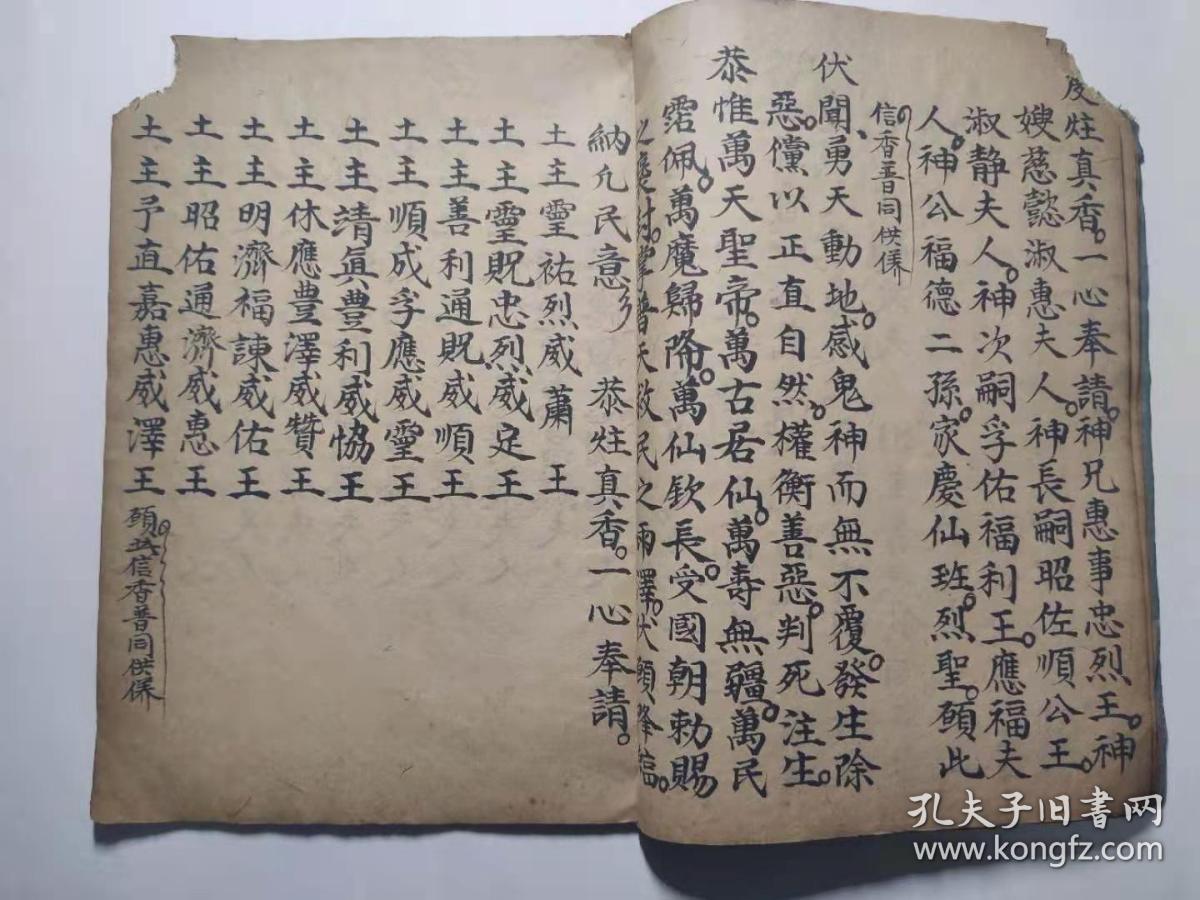 炷真香。一心奉請。神兄惠事忠烈王。神
嫂慈懿淑惠夫人。神長嗣昭佐順公王。
淑静夫人。神次嗣孚佑福利王。應福夫
人。神公福德二孫。家慶仙班。烈聖。願此
信香普同供養
伏聞、勇天動地。感鬼神而無不覆。發生除
惡。儻以正直自然。權衡善惡。判死注生。
恭惟萬天聖帝。萬古居仙。萬壽無疆。萬民
霑佩。萬魔歸降。萬仙欽長。受國朝勅賜
救民之雨澤。伏願降福。
納允民意 恭炷真香。一心奉請。
土主靈祐烈威肅王
土主靈貺忠烈威定王
土主善利通貺威順王
土主順成孚應威靈王
土主靖真豊利威恊王
土主休應豊澤威贊王
土主明濟福諫威佑王
土主昭佑通濟威惠王
土主予直嘉惠威澤王
願此信香普同供養
孔夫子旧书网
www.kongfz.com